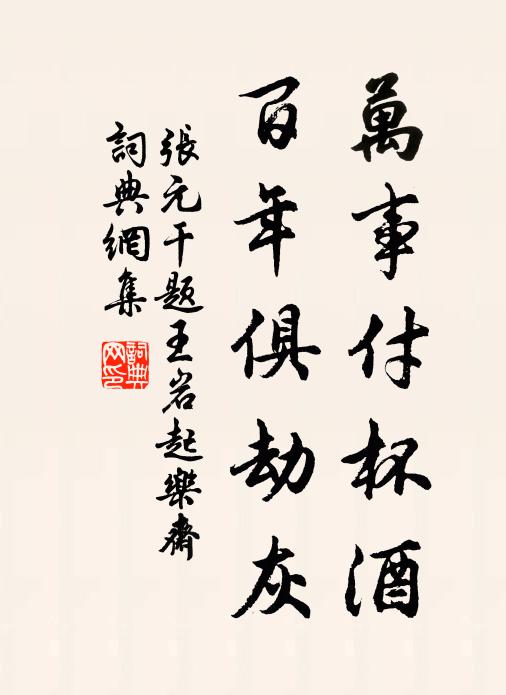 萬事付杯酒
百年俱劫灰
張元干題王岩起樂齋
詞典網集
詞典网印